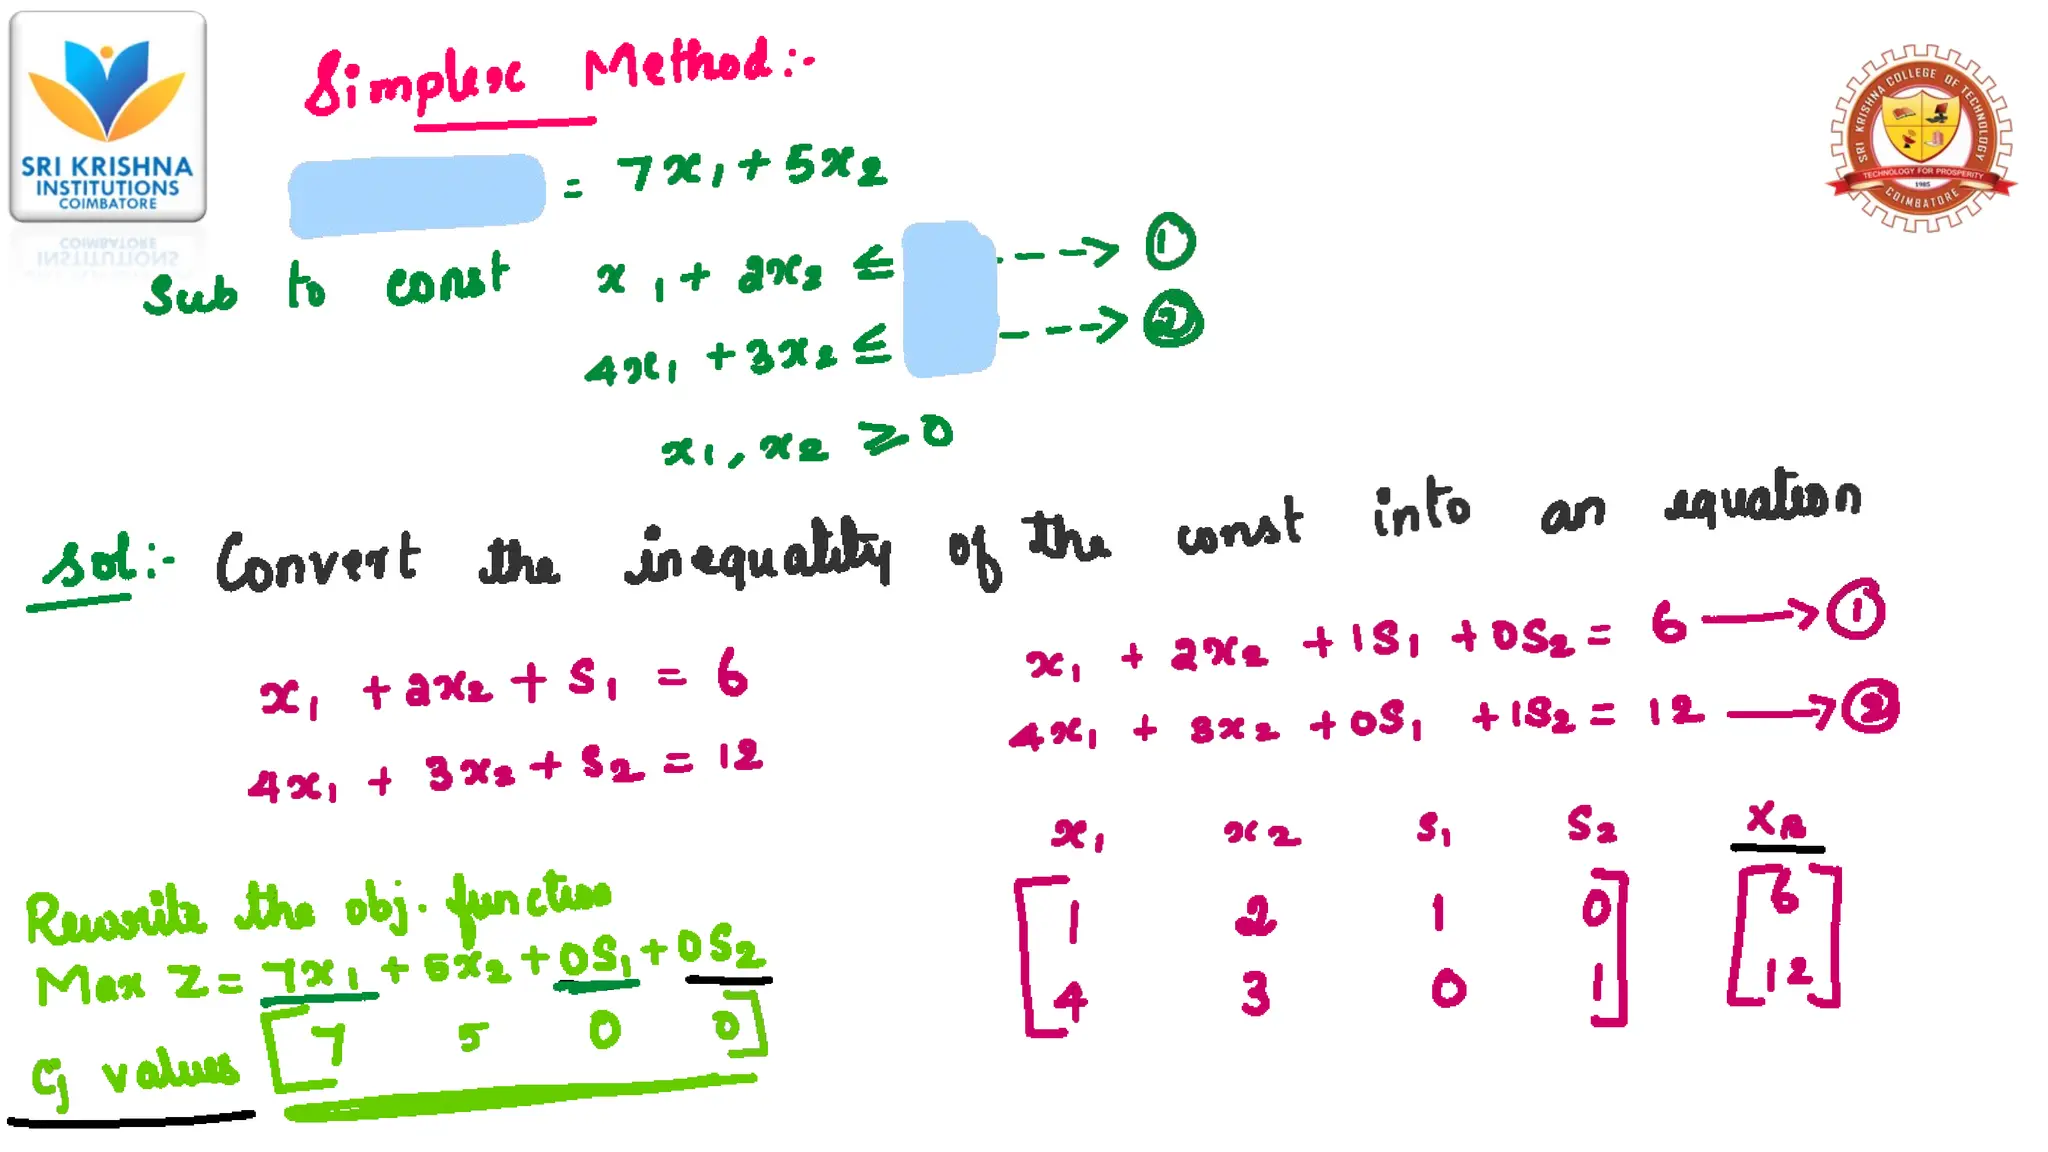 SRI KRISHNA
INSTITUTIONS
COIMBATORE
SRI KRISHNA COLLEGE OF TECHNOLOGY
TECHNOLOGY FOR PROSPERITY
1985
COIMBATORE
Simplex Method:-
= 7x₁ + 5x₂
Sub to const x₁ + 2x₂ ≤ ---> ①
4x₁ + 3x₂ ≤ ---> ②
x₁, x₂ ≥ 0
Sol:- Convert the inequality of the const into an equation
x₁ + 2x₂ + S₁ = 6
4x₁ + 3x₂ + S₂ = 12
x₁ + 2x₂ + 1S₁ + 0S₂ = 6 → ①
4x₁ + 3x₂ + 0S₁ + 1S₂ = 12 → ②
x₁ x₂ S₁ S₂ X_B
[1 2 1 0] [6]
[4 3 0 1] [12]
Rewrite the obj. function
Max Z = 7x₁ + 5x₂ + 0S₁ + 0S₂
Cj values [7 5 0 0]